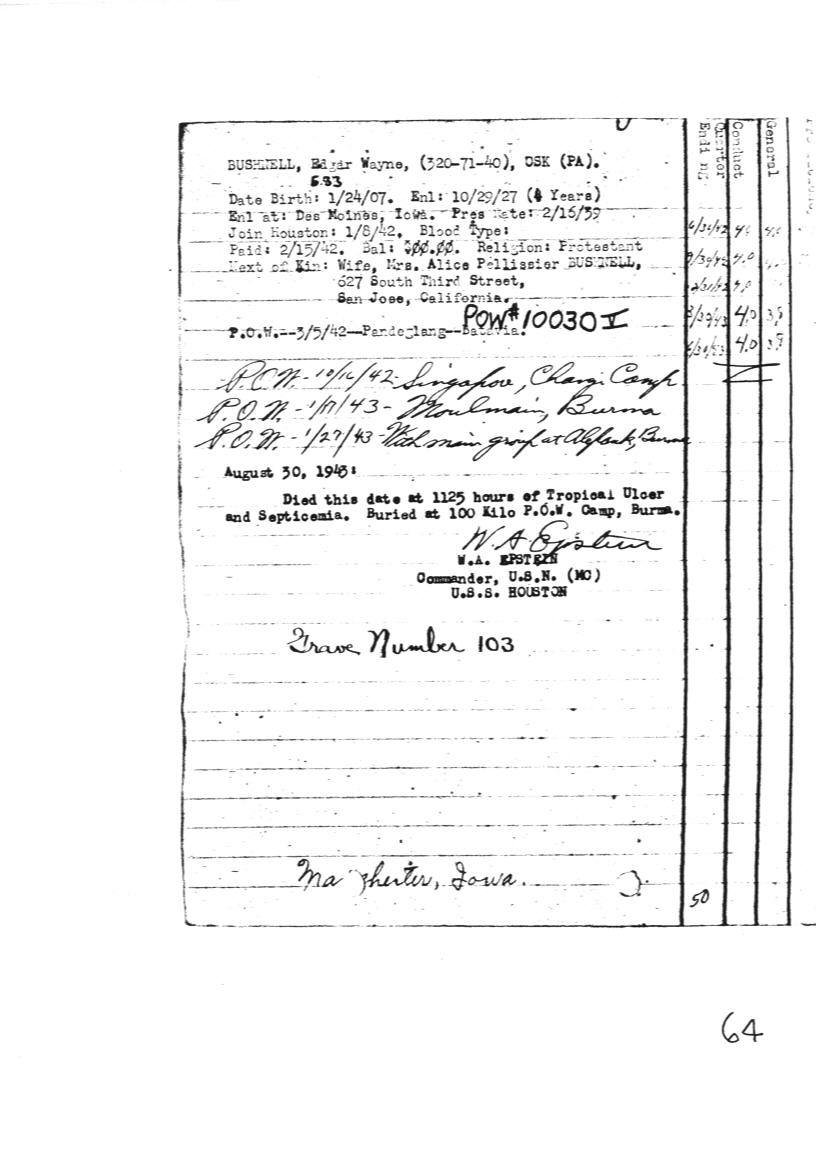 BUSHNELL, Edgar Wayne, (320-71-40), OSK (PA).
683
Date Birth: 1/24/07. Enl: 10/29/27 (4 Years)
Enl at: Des Moines, Iowa. Pres Rate: 2/16/39
Join Houston: 1/8/42. Blood Type:
Paid: 2/15/42. Bal: $00.00. Religion: Protestant
Next of Kin: Wife, Mrs. Alice Pellissier BUSHNELL,
627 South Third Street,
San Jose, California.
POW# 10030 V
P.O.W.--3/5/42--Pandeglang--Batavia.
P.O.W. - 10/16/42 - Singapore, Changi Camp
P.O.W. - 1/17/43 - Moulmain, Burma
P.O.W. - 1/27/43 - With main group at Burma
August 30, 1943:
Died this date at 1125 hours of Tropical Ulcer
and Septicemia. Buried at 100 Kilo P.O.W. Camp, Burma.
W. A. Epstein
W.A. EPSTEIN
Commander, U.S.N. (MC)
U.S.S. HOUSTON
Grave Number 103
Ma chester, Iowa.
Quarter Ending
Conduct
General
6/30/42 4.0 4.0
9/30/42 4.0
4.0
3/30/43 4.0 3.8
6/30/43 4.0 3.8
50
64